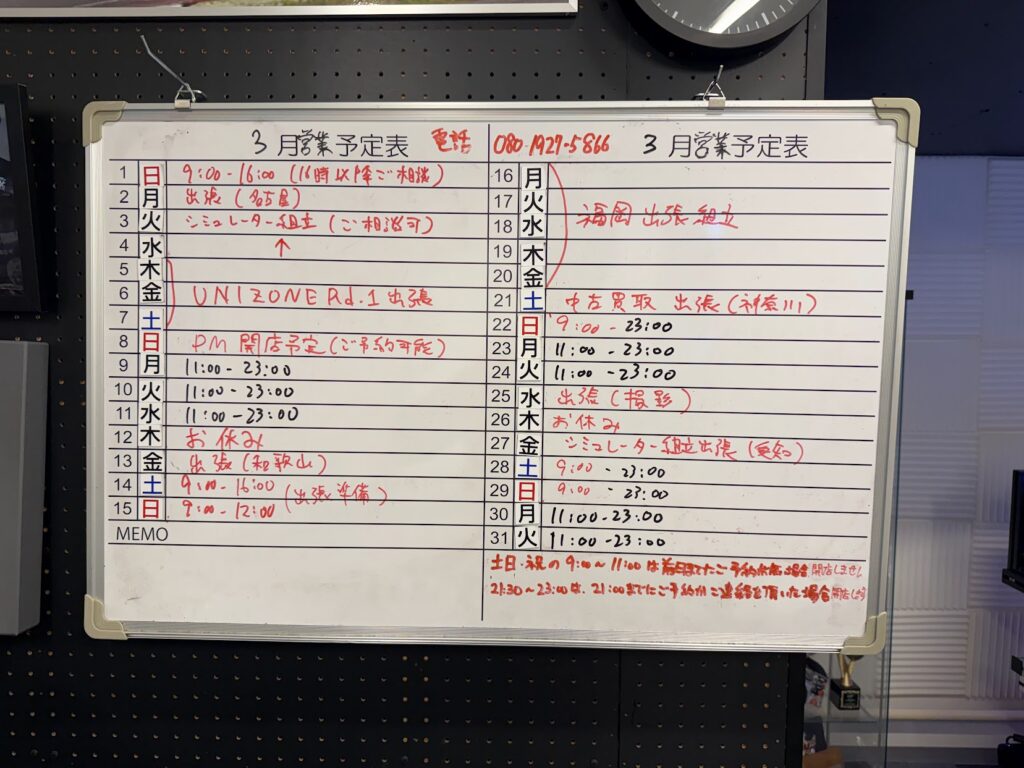 3月営業予定表 電話 080-1927-5866 3月営業予定表
1 日 9:00-16:00 (16時以降ご相談)
2 月 出張(名古屋)
3 火 シミュレーター組立(ご相談可)
4 水 ↑
5 木
6 金 UNIZONE Rd.1 出張
7 土
8 日 PM 開店予定(ご予約可能)
9 月 11:00-23:00
10 火 11:00-23:00
11 水 11:00-23:00
12 木 お休み
13 金 出張(和歌山)
14 土 9:00-16:00 (出張準備)
15 日 9:00-12:00
MEMO
16 月
17 火
18 水 福岡出張組立
19 木
20 金
21 土 中古買取 出張(神奈川)
22 日 9:00-23:00
23 月 11:00-23:00
24 火 11:00-23:00
25 水 出張(撮影)
26 木 お休み
27 金 シミュレーター組立出張(愛知)
28 土 9:00-23:00
29 日 9:00-23:00
30 月 11:00-23:00
31 火 11:00-23:00
土日・祝の9:00~11:00は前日までにご予約無い場合開店しません
21:30~23:00は、21:00までにご予約かご連絡を頂いた場合開店します